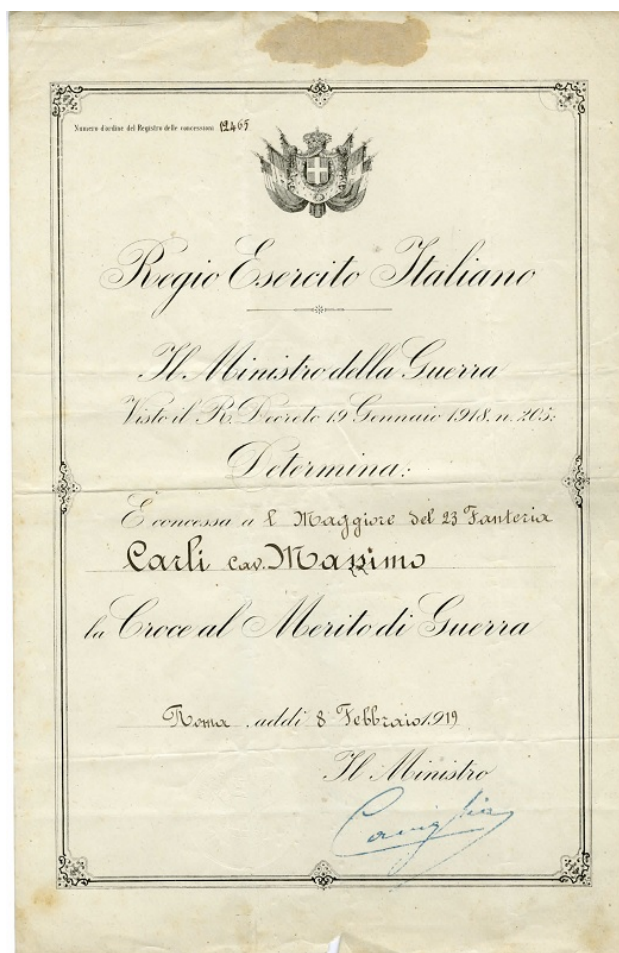 Numero d'ordine del Registro delle concessioni 12465
Regio Esercito Italiano
Il Ministro della Guerra
Visto il R. Decreto 19 Gennaio 1918. n. 205:
Determina:
È concessa a l Maggiore del 23 Fanteria
Carli cav. Massimo
la Croce al Merito di Guerra
Roma addì 8 Febbraio 1919
Il Ministro
Caviglia